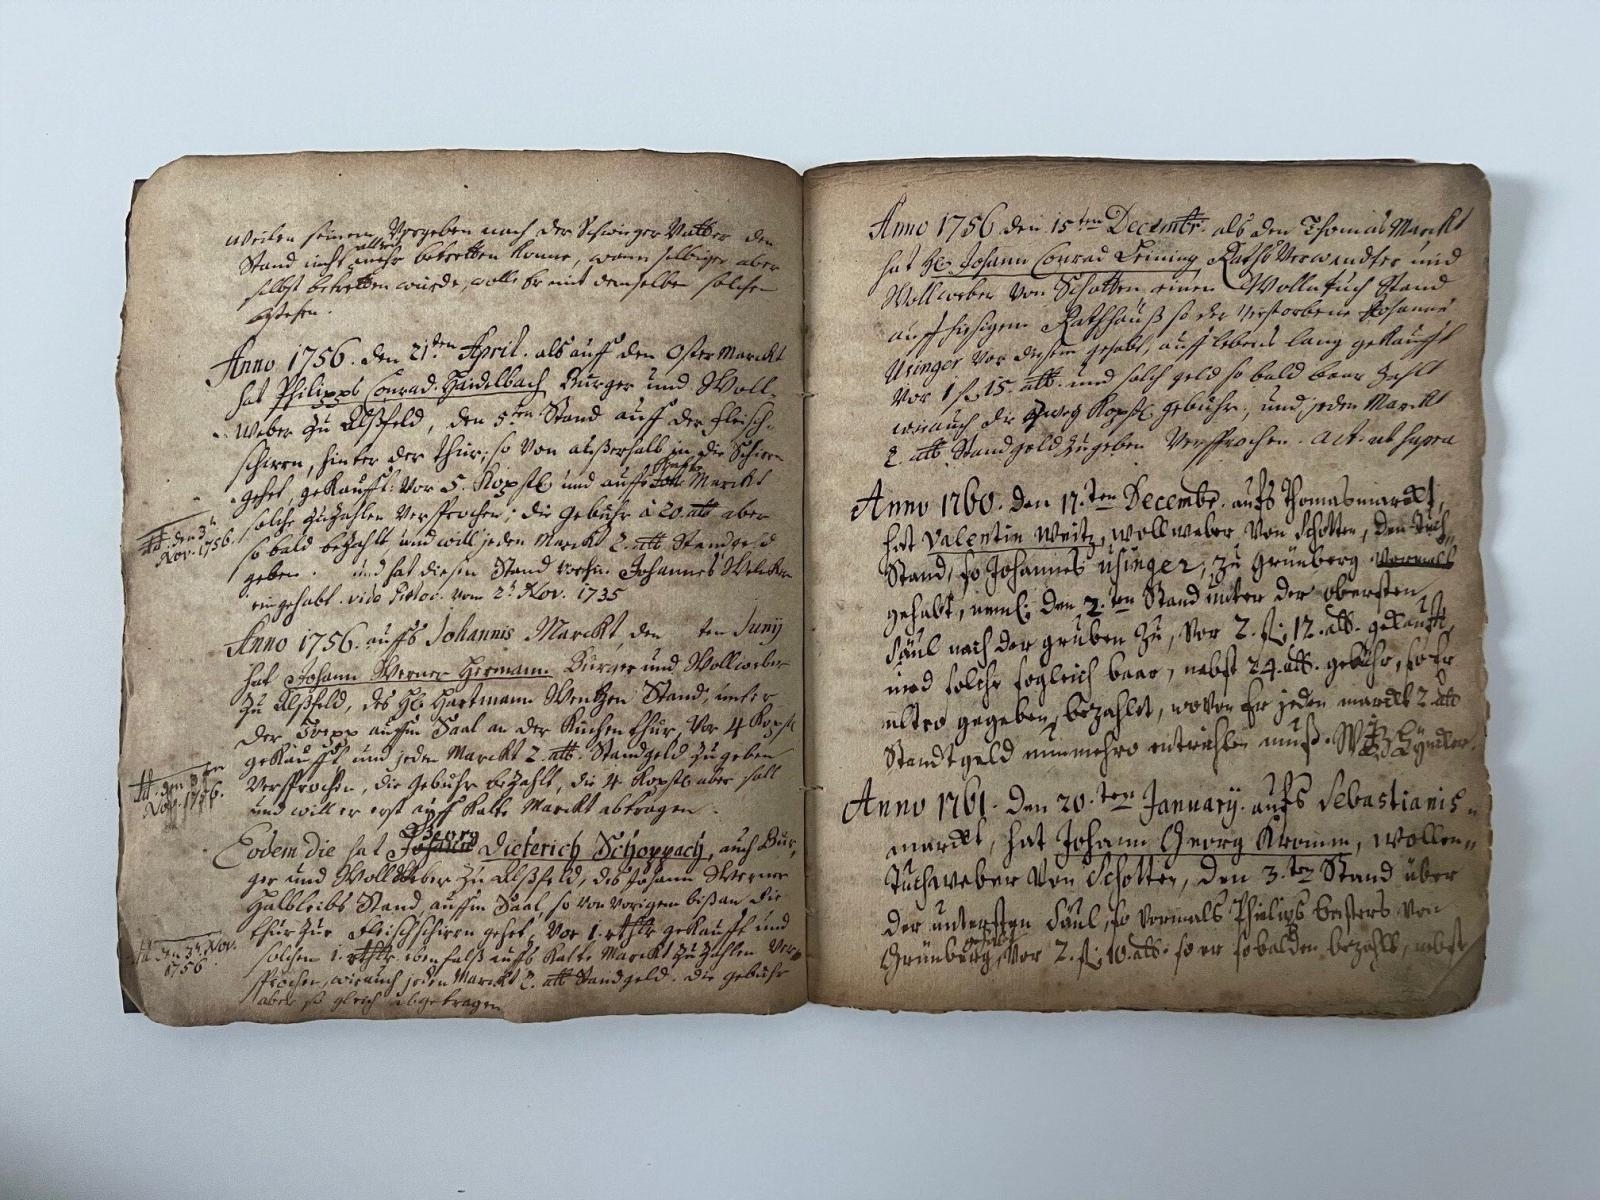 weilen seinem Vorgeben nach der Schwieger Vatter den
Stand nicht allzeit mehr betretten könne, wann selbiger aber
selbst betretten würde, wolle Er mit demselben solchen
Anno 1756. den 21ten April. als auff den Oster Marckt
hat Philipps Conrad Haidelbach Burger und Woll-
weber zu Alßfeld, den 5ten Stand auff der Fleisch-
schirrn, hinter der Thür, so von außerhalb in die Schirrn
gehet, gekaufft vor 5. Kopfst und auffs Marckt
solche zu zahlen versprochen, die Gebühr à 20. alb aber
so bald bezahlt, und will jeden Marckt 2. alb Standgeld
geben. und hat diesen Stand vorhin Johannes Welcker
eingehabt. vid. Protoc. vom 2t Nov. 1735
dt. den 3tn
Nov. 1756.
Anno 1756. auffs Johannis Marckt, den ten Junij
hat Johann Werner Hermann Burger und Wollweber
zu Alßfeld, des Hl. Hartmann Wentzen Stand, unter
der Trepp auffm Saal an der Küchen thür, vor 4 Kopfst
gekaufft und jeden Marckt 2. alb. Standgeld zu geben
versprochen, die Gebühr bezahlt, die 4 Kopfst aber soll
und will er erst auff Kalte Marckt abtragen.
dt. den
Nov. 1756.
Eodem die hat Georg Johann Dieterich Schoppach, auch Bur-
ger und Wollweber zu Alßfeld, des Johann Werner
Halbleibs Stand, auffm Saal, so von vorigem biß an die
thür zur Fleischschirrn gehet, vor 1. rthlr gekaufft und
solchen 1. rthlr. ebenfalß auffs Kalte Marckt zu zahlen ver-
sprochen, wie auch jeden Marckt 2. alb Standgeld. die gebühr
aber so gleich abgetragen
dt. den 3tn Nov.
1756
Anno 1756 den 15ten Decembr. als den Thomas Marckt
hat Hl. Johann Conrad Leining Raths Verwandter und
Wollweber von Schotten einen Wollntuch Stand
auff hiesigem Rathhauß so der verstorbene Johannes
Usinger vor diesem gehabt, auff lebens lang gekaufft
vor 1 fl. 15. alb. und solch geld so bald baar zahlt
wie auch die zwey Kopfst. gebühr, und jeden Marckt
2. alb Standgeld zu geben versprochen. act. ut supra
Anno 1760. den 17.ten Decembr. aufs Thomasmarckt,
hat Valentin Weitz, wollweber von Schotten, den Tuch-
Stand, so Johannes Usinger, zu Grünberg vormals
gehabt, neml. den 2.ten Stand unter der obersten
Säul nach der gruben zu, vor 2. fl. 12. alb. gekaufft,
und solche sogleich baar, nebst 24. alb. gebühr, so Er
ultro gegeben, bezahlt, wovon Er jeden marckt 2. alb
Standtgeld nunmehro entrichten muß.
Anno 1761. den 20.ten January. aufs Sebastianis-
marckt, hat Johann Georg Kromm, wollen-
Tuchweber von Schotten, den 3.ten Stand über
der untersten Säul, so vormals Philips von
Grünberg gehabt, vor 2. fl. 10. alb. so er so balden bezahlt, nebst